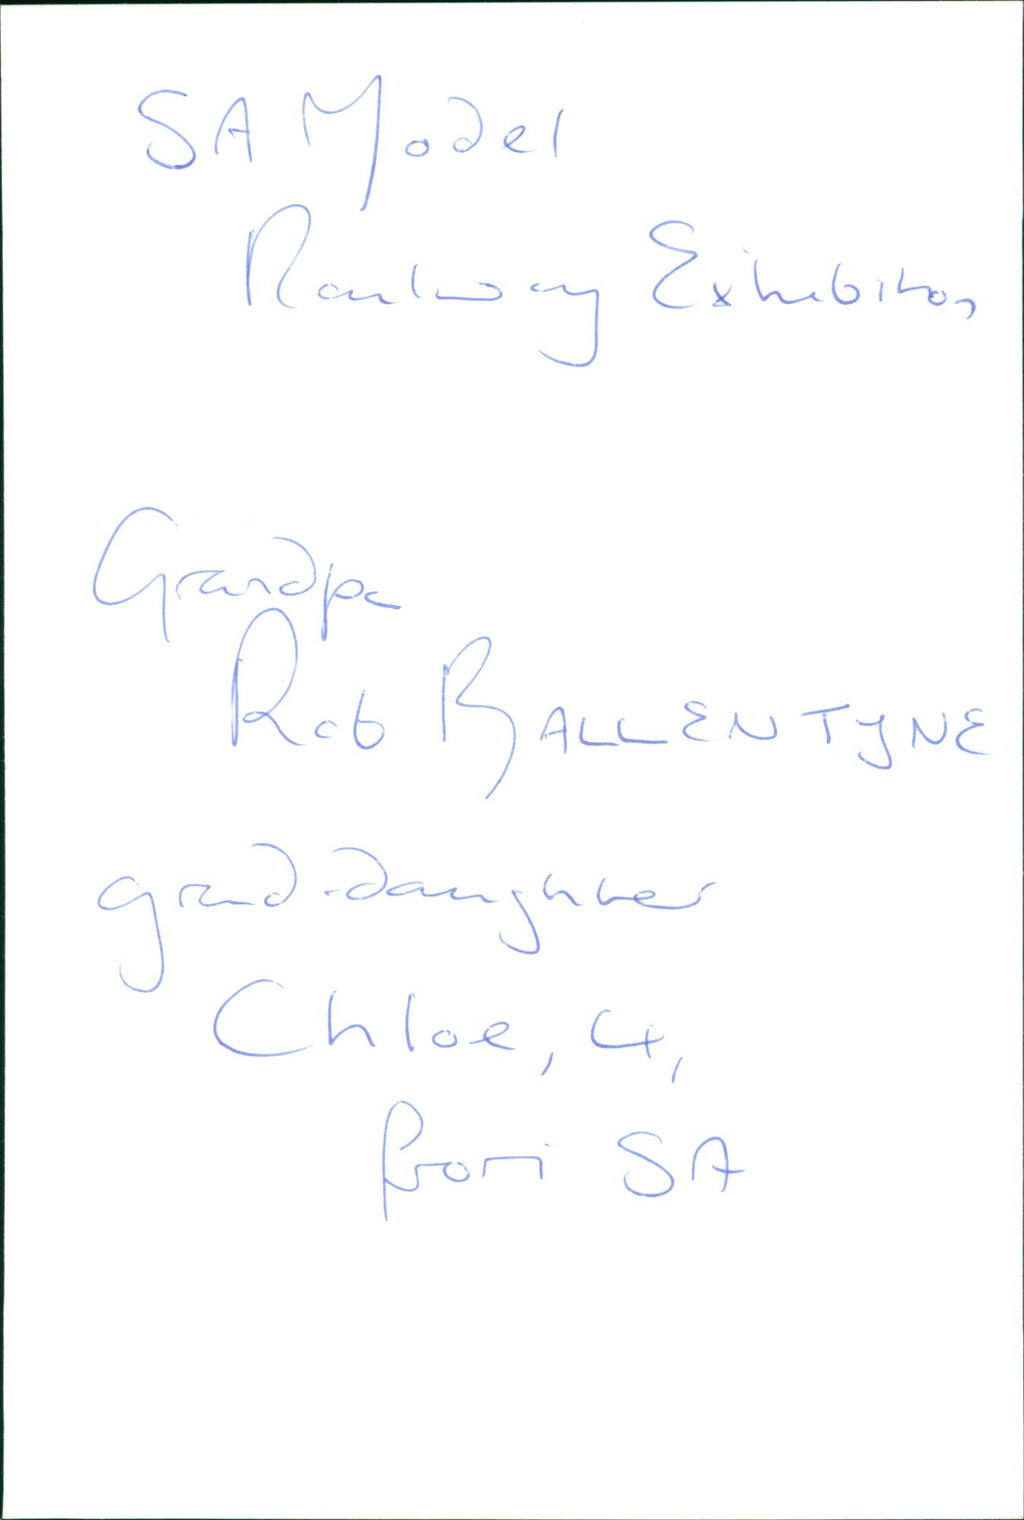 SA Model
Railway Exhibition
Grandpa
Rob BALLENTYNE
grand-daughter
Chloe, 4,
from SA